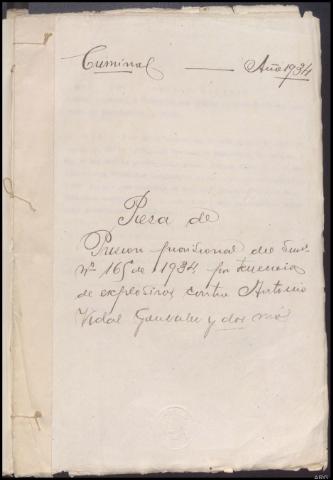 Criminal — Año 1934
Pieza de
Prision provisional del Sum.º
nº 165 de 1934 por tenencia
de explosivos contra Antonio
Vidal y dos más